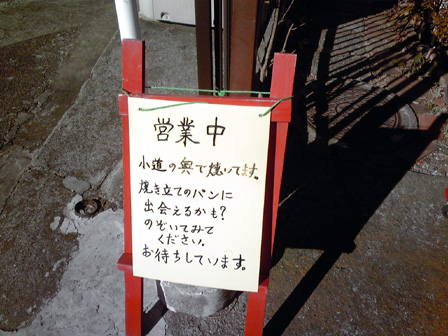 営業中
小道の奥で焼いてます。
焼き立てのパンに
出会えるかも?
のぞいてみて
ください。
お待ちしています。